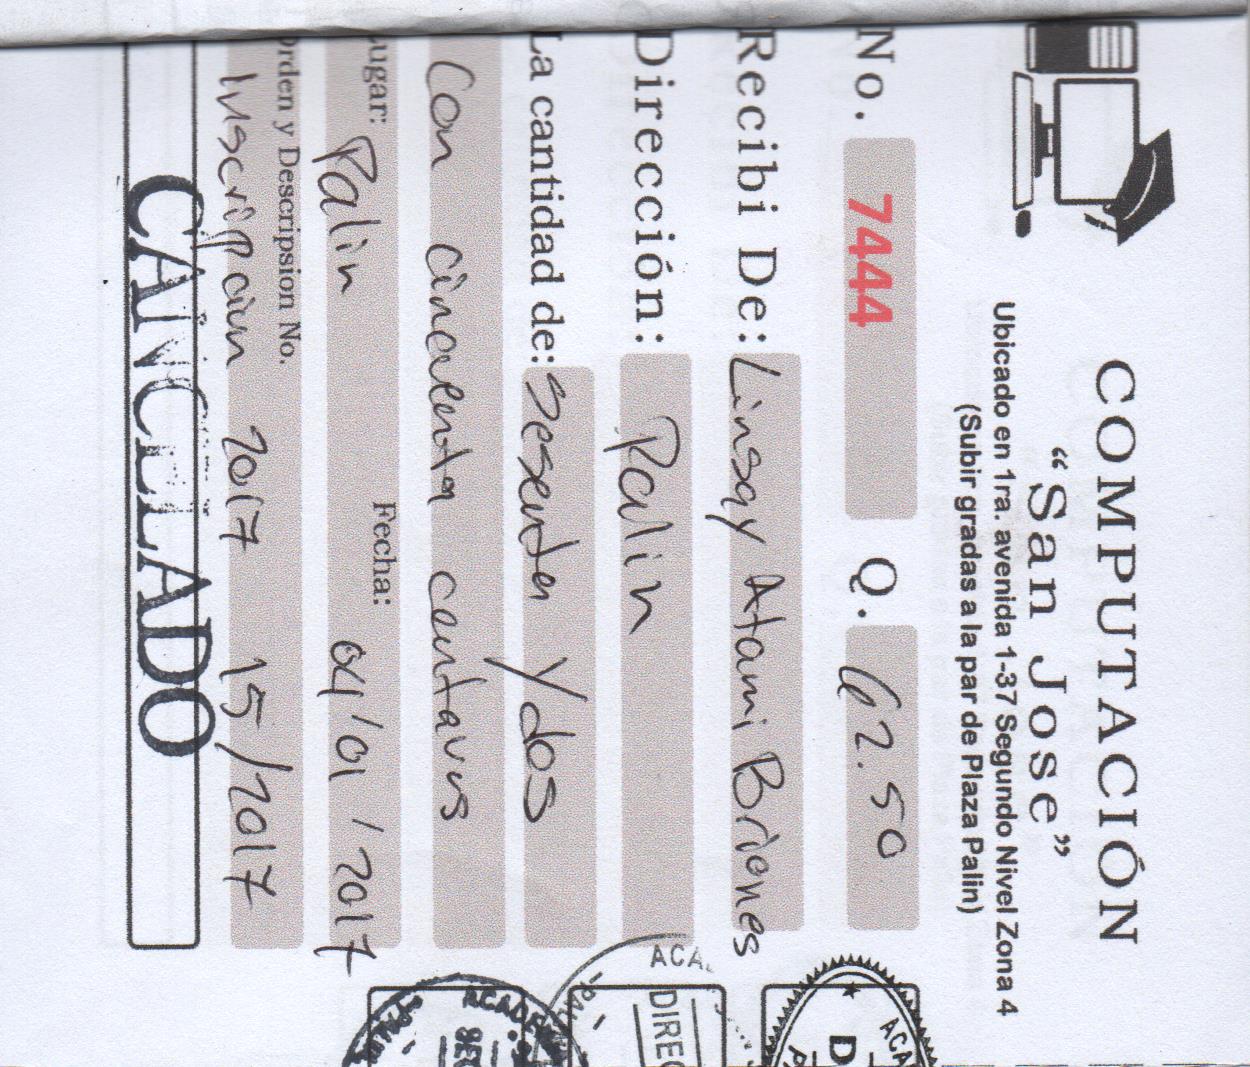 COMPUTACIÓN
“San Jose”
Ubicado en 1ra. avenida 1-37 Segundo Nivel Zona 4
(Subir gradas a la par de Plaza Palin)
No. 7444 Q. 62.50
Recibi De: Linsay Atami Briones
Dirección: Palin
La cantidad de: Sesenta y dos
Con cincuenta centavos
Lugar: Palin Fecha: 04/01/2017
Orden y Descripsion No.
Inscripcion 2017 15/2017
CANCELADO
ACA
D
ACA
DIREC
ACADEM
SEC